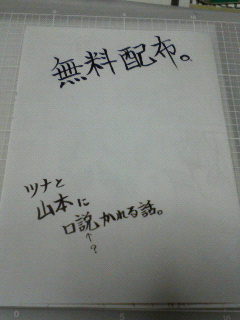 無料配布。
ツナと
山本に
口説かれる話。
↑
?